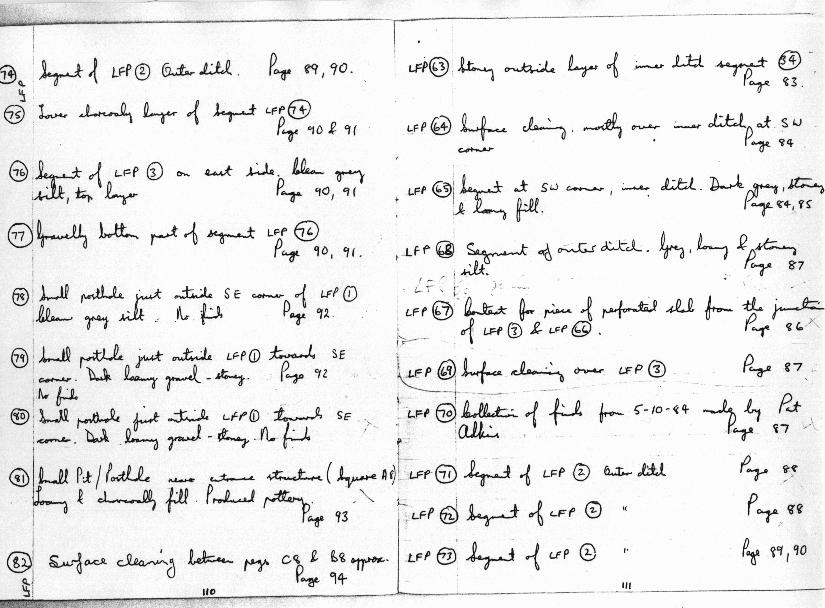 LFP 74 Segment of LFP 2 Outer ditch. Page 89, 90.
75 Lower charcoaly layer of Segment LFP 74
Page 90 & 91
76 Segment of LFP 3 on east side. Clean grey
silt, top layer Page 90, 91
77 Gravelly bottom part of segment LFP 76
Page 90, 91.
78 Small posthole just outside SE corner of LFP 1
Clean grey silt. No finds Page 92.
79 Small posthole just outside LFP 1 towards SE
corner. Dark loamy gravel - stoney. Page 92
No finds
80 Small posthole just outside LFP 1 towards SE
corner. Dark loamy gravel - stoney. No finds
81 Small Pit / Posthole near entrance structure (Square A8)
Loamy & charcoally fill. Produced pottery.
Page 93
LFP 82 Surface cleaning between pegs C8 & B8 approx.
Page 94
110
LFP 63 Stoney outside layer of inner ditch segment 34
Page 83.
LFP 64 Surface cleaning, mostly over inner ditch, at SW
corner Page 84
LFP 65 Segment at SW corner, inner ditch. Dark grey, stoney
& loamy fill. Page 84, 85
LFP 68 Segment of outer ditch. Grey, loamy & stoney
silt. Page 87
LFP 67 Context for piece of perforated slab from the junction
of LFP 3 & LFP 66. Page 86
LFP 69 Surface cleaning over LFP 3 Page 87
LFP 70 Collection of finds from 5-10-84 made by Pat
Adkins Page 87
LFP 71 Segment of LFP 2 Outer ditch Page 88
LFP 72 Segment of LFP 2 " Page 88
LFP 73 Segment of LFP 2 " Page 89, 90
111